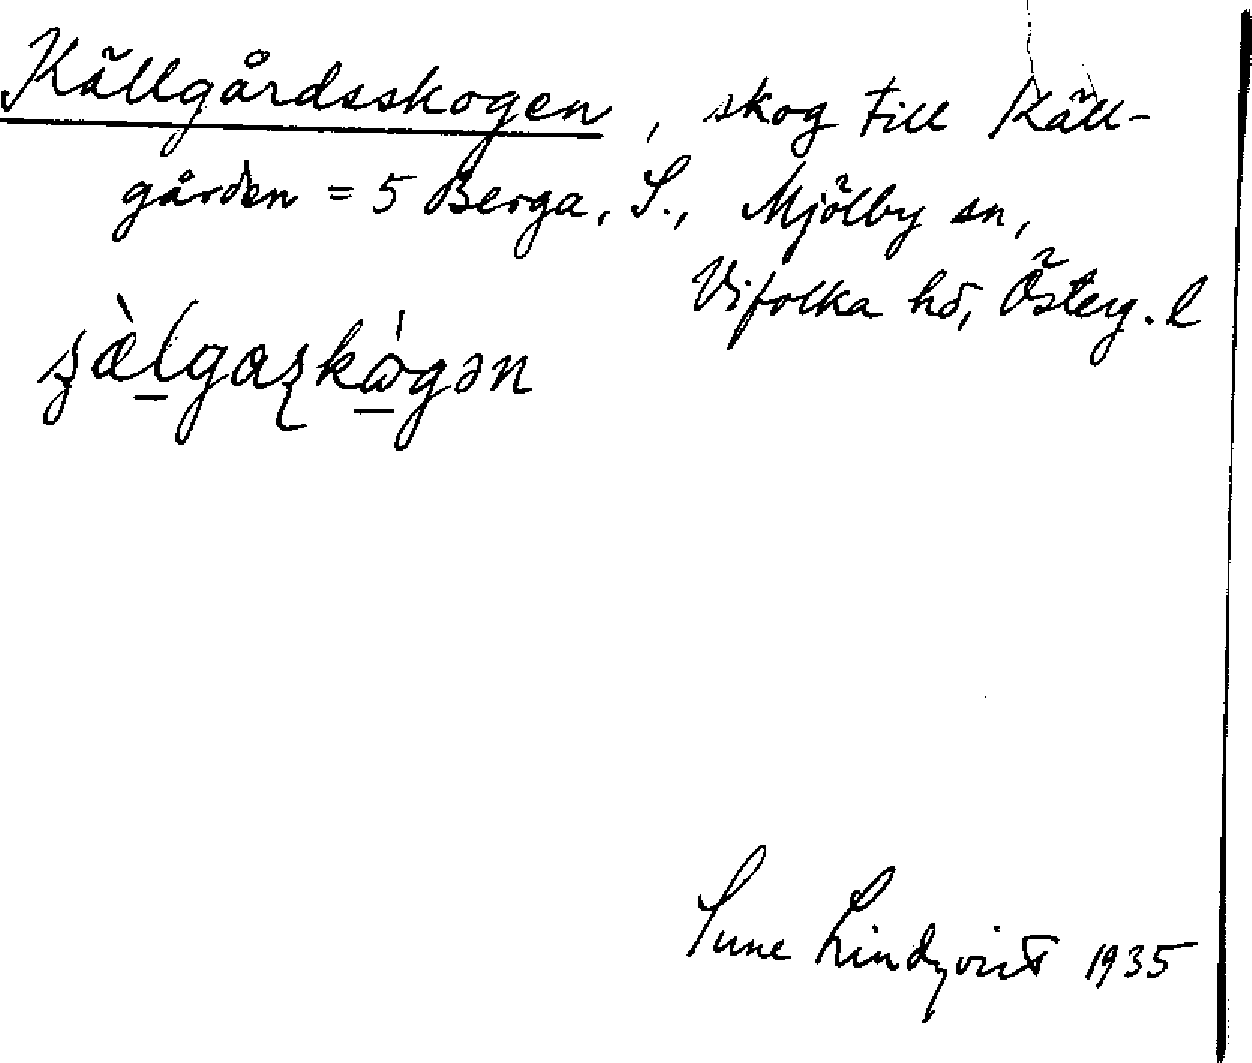 Källgårdsskogen, skog till Käll-
gården = 5 Berga, S., Mjölby sn,
Vifolka hd, Österg. l
Sune Lindqvist 1935